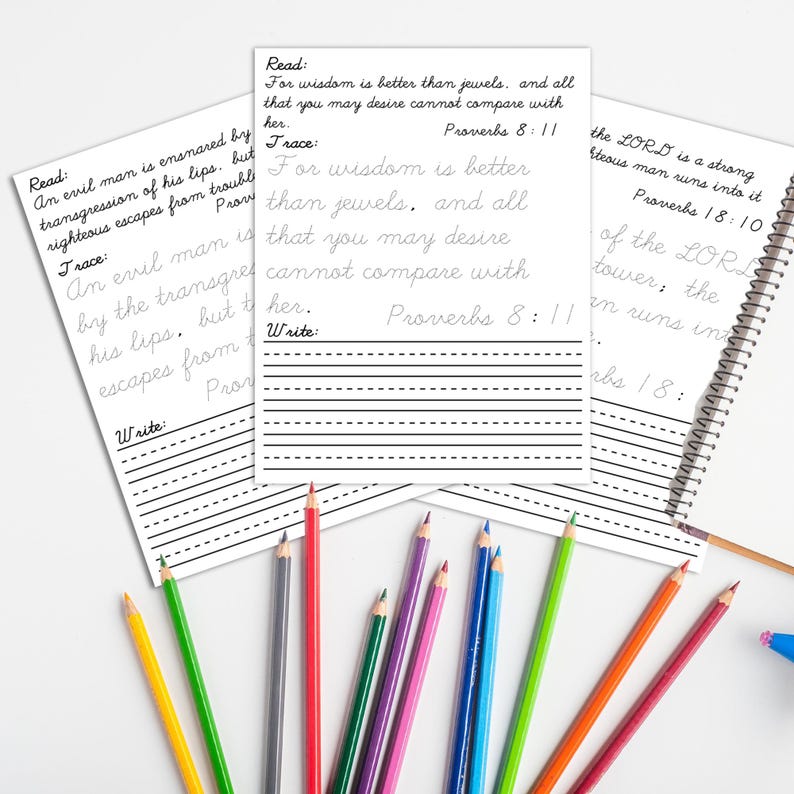 Read:
An evil man is ensnared by
transgression of his lips, but
righteous escapes from
Trace:
An evil man is
by the
his lips, but
escapes from
Write:
Read:
For wisdom is better than jewels, and all
that you may desire cannot compare with
her.
Proverbs 8:11
Trace:
For wisdom is better
than jewels, and all
that you may desire
cannot compare with
her.
Proverbs 8:11
Write:
the LORD is a strong
man runs into it
Proverbs 18:10
of the LORD
tower; the
runs
18: